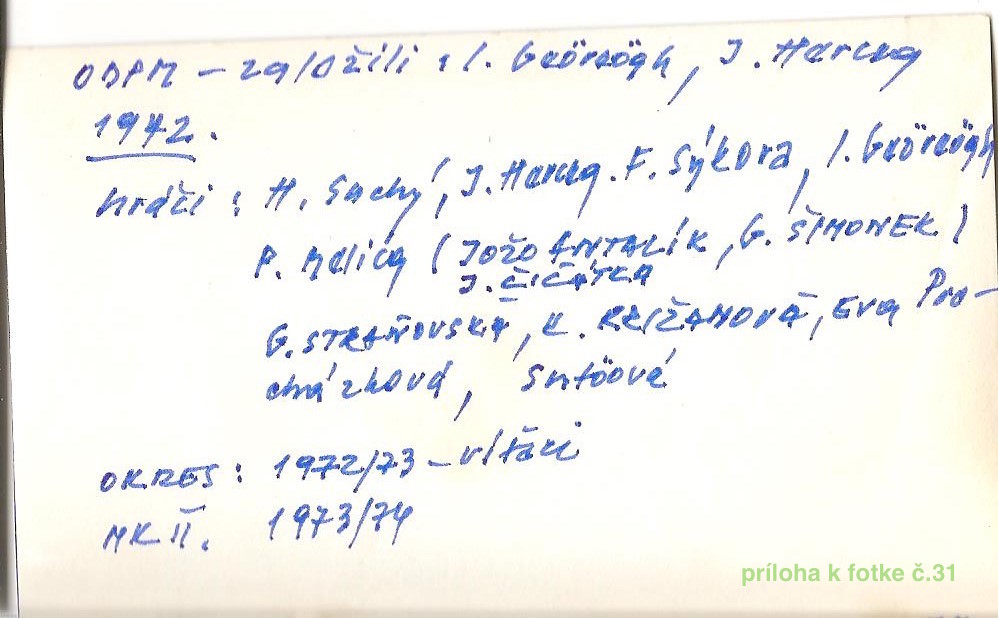 ODPM – založili : I. Györgögh, J. Herceg
1972.
hráči : H. Suchý, J. Herceg. F. Sýkora, I.
P. (JOŽO ANTALÍK, G. ŠIMONEK)
J. ČIČÁTKA
G. STRAŇOVSKÁ, K. KRIŽANOVÁ, Eva Pro–
cházková,
OKRES : 1972/73 – víťazi
MK II. 1973/74
príloha k fotke č.31